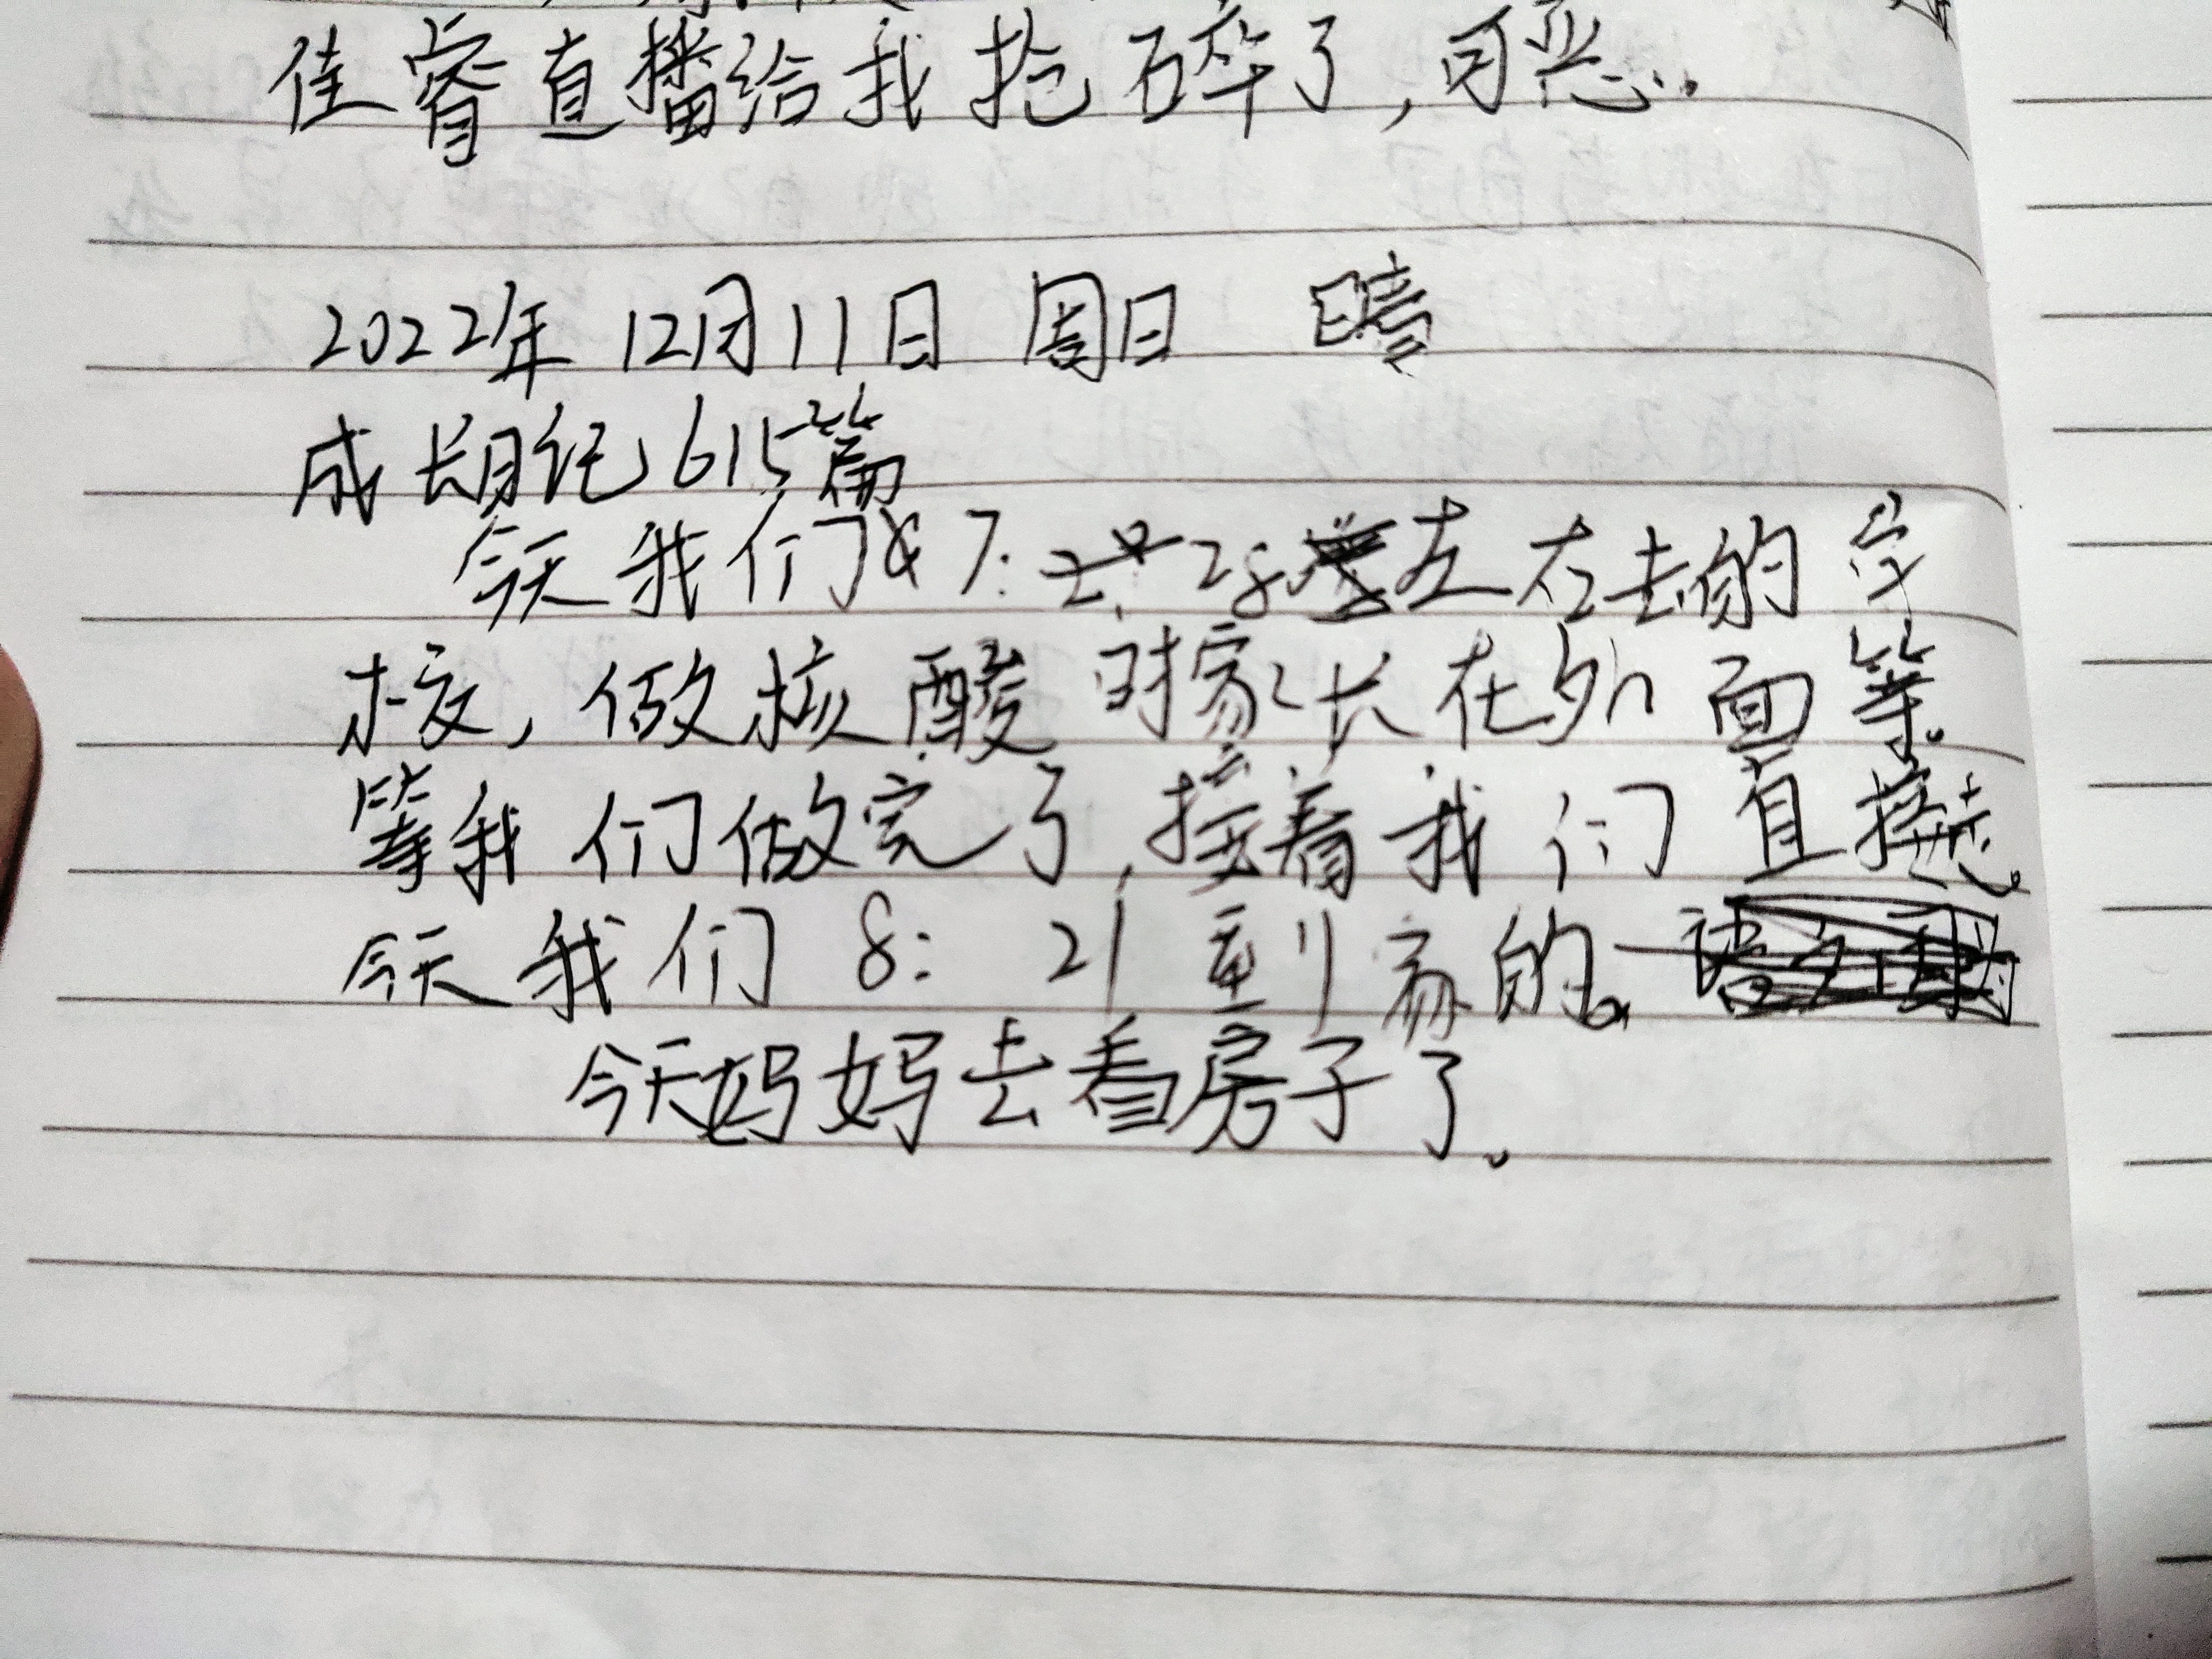 佳睿直播给我抢碎了,可恶...
2022年12月11日 周日 晴
成长日记615篇
今天我们 7: 28 左右去的学
校,做核酸时家长在外面等。
等我们做完了,接着我们直接走。
今天我们 8: 21 到家的。
今天妈妈去看房子了。